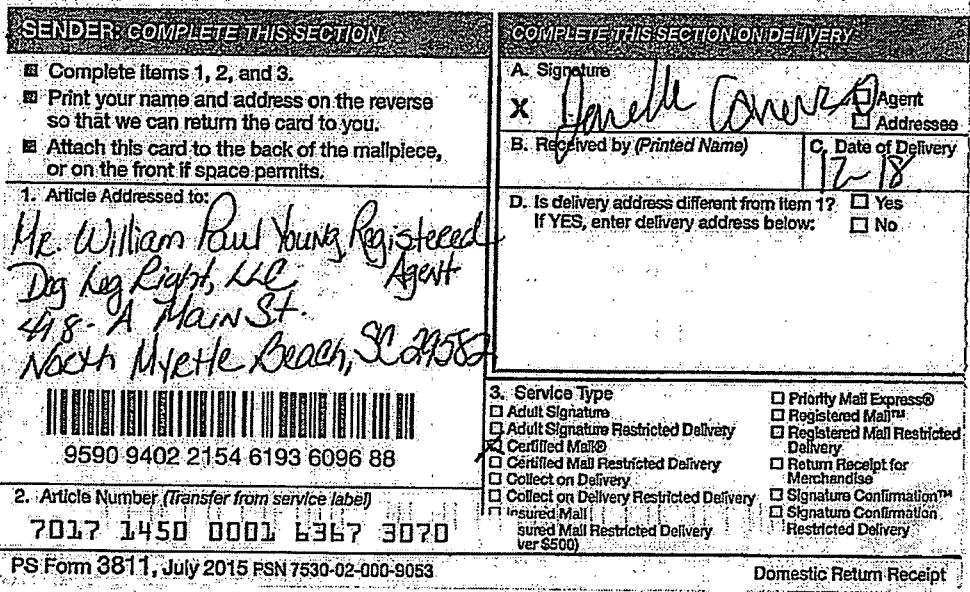 SENDER: COMPLETE THIS SECTION
Complete items 1, 2, and 3.
Print your name and address on the reverse
so that we can return the card to you.
Attach this card to the back of the mailpiece,
or on the front if space permits.
1. Article Addressed to:
Mr. William Paul Young, Registered
Agent
Dog Leg Right, LLC
418-A Main St.
North Myrtle Beach, SC 29582
9590 9402 2154 6193 6096 88
2. Article Number (Transfer from service label)
7017 1450 0001 6367 3070
COMPLETE THIS SECTION ON DELIVERY
A. Signature
X
Agent
Addressee
B. Received by (Printed Name)
C. Date of Delivery
12-18
D. Is delivery address different from item 1? Yes
If YES, enter delivery address below: No
3. Service Type
Adult Signature
Adult Signature Restricted Delivery
Certified Mail®
Certified Mail Restricted Delivery
Collect on Delivery
Collect on Delivery Restricted Delivery
Insured Mail
sured Mail Restricted Delivery
ver $500)
Priority Mail Express®
Registered Mail™
Registered Mail Restricted
Delivery
Return Receipt for
Merchandise
Signature Confirmation™
Signature Confirmation
Restricted Delivery
PS Form 3811, July 2015 PSN 7530-02-000-9053
Domestic Return Receipt